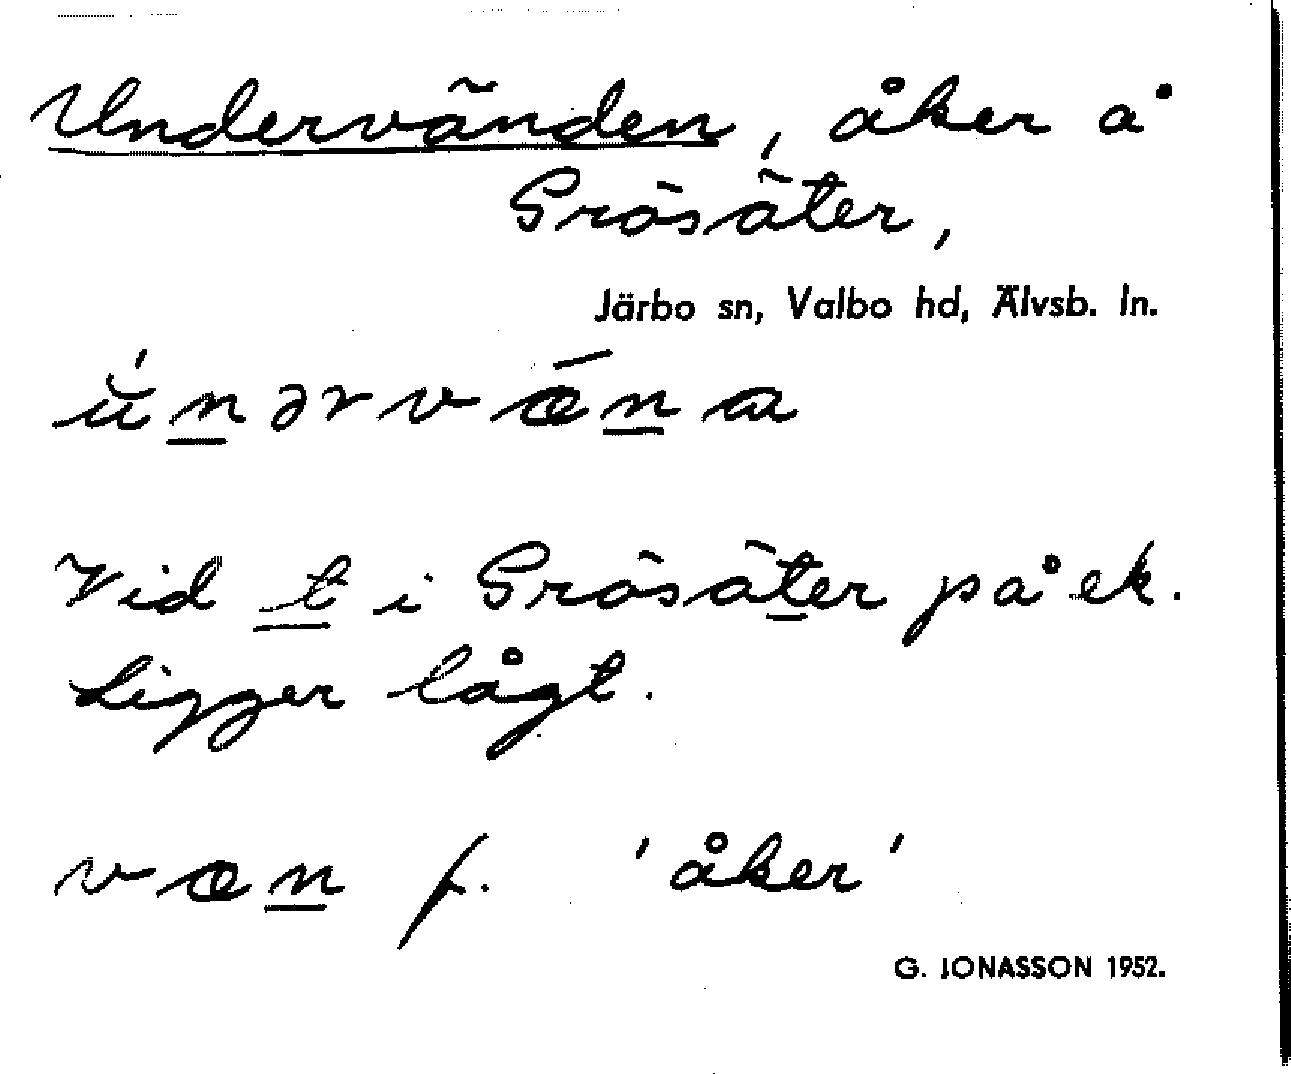 Undervänden, åker å
Grösäter,
Järbo sn, Valbo hd, Älvsb. ln.
únərvǽna
Vid t i Grösäter på ek.
Ligger lågt.
væn f. 'åker'
G. JONASSON 1952.